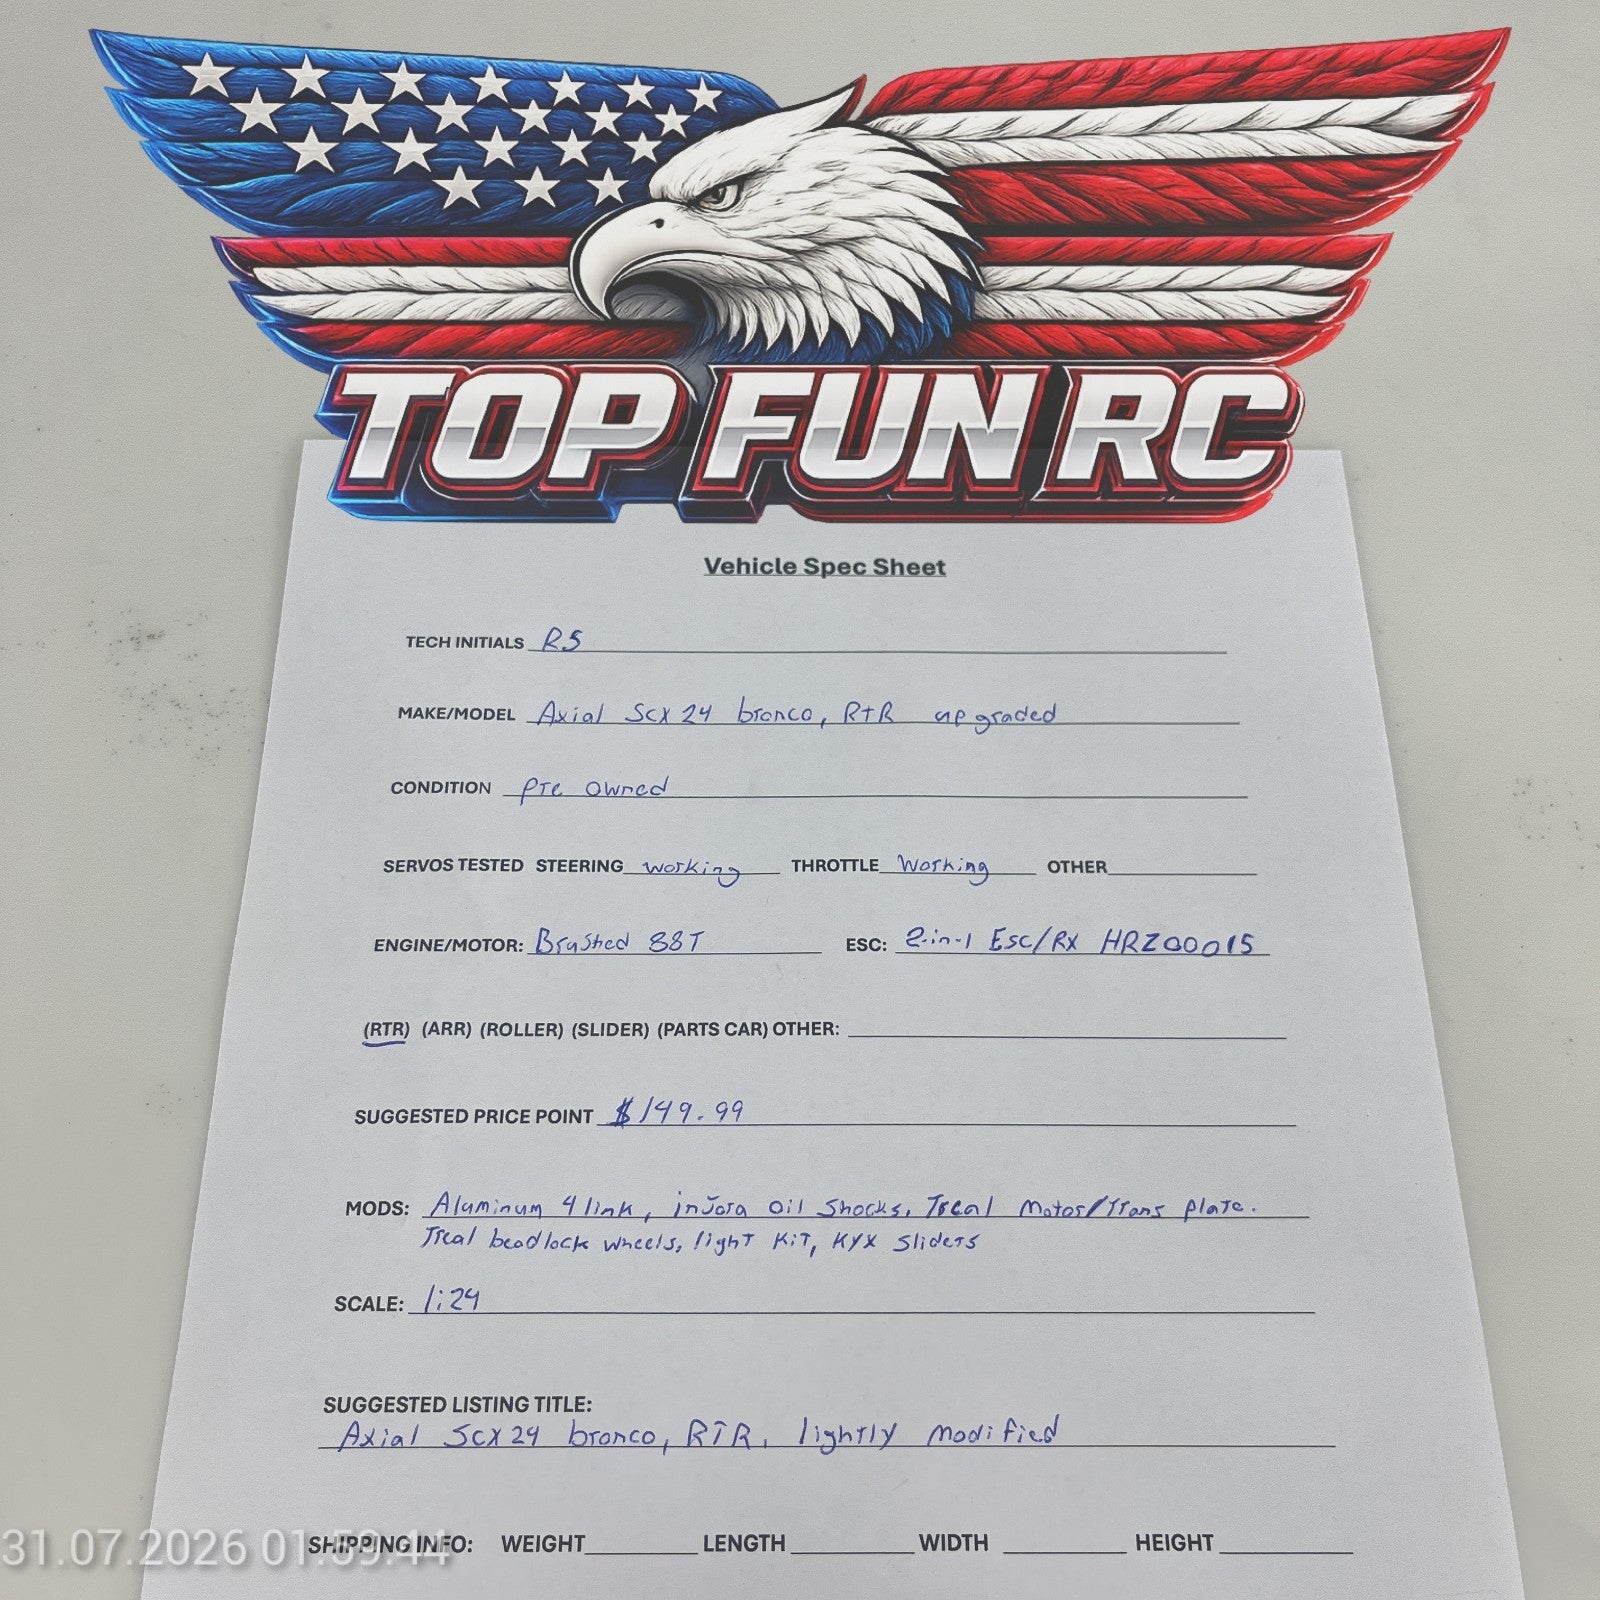 TOP FUN RC
Vehicle Spec Sheet
TECH INITIALS RS
MAKE/MODEL Axial Scx24 bronco, RTR upgraded
CONDITION Pre owned
SERVOS TESTED STEERING working THROTTLE Working OTHER
ENGINE/MOTOR: Brushed 88T ESC: 2-in-1 Esc/Rx HRZ00015
(RTR) (ARR) (ROLLER) (SLIDER) (PARTS CAR) OTHER:
SUGGESTED PRICE POINT $149.99
MODS: Aluminum 4 link, injora Oil Shocks, Treal Motor/Trans plate.
Treal beadlock wheels, light kit, KYX Sliders
SCALE: 1:24
SUGGESTED LISTING TITLE:
Axial Scx24 bronco, RTR, lightly modified
SHIPPING INFO: WEIGHT LENGTH WIDTH HEIGHT
31.07.2026 01:59:44